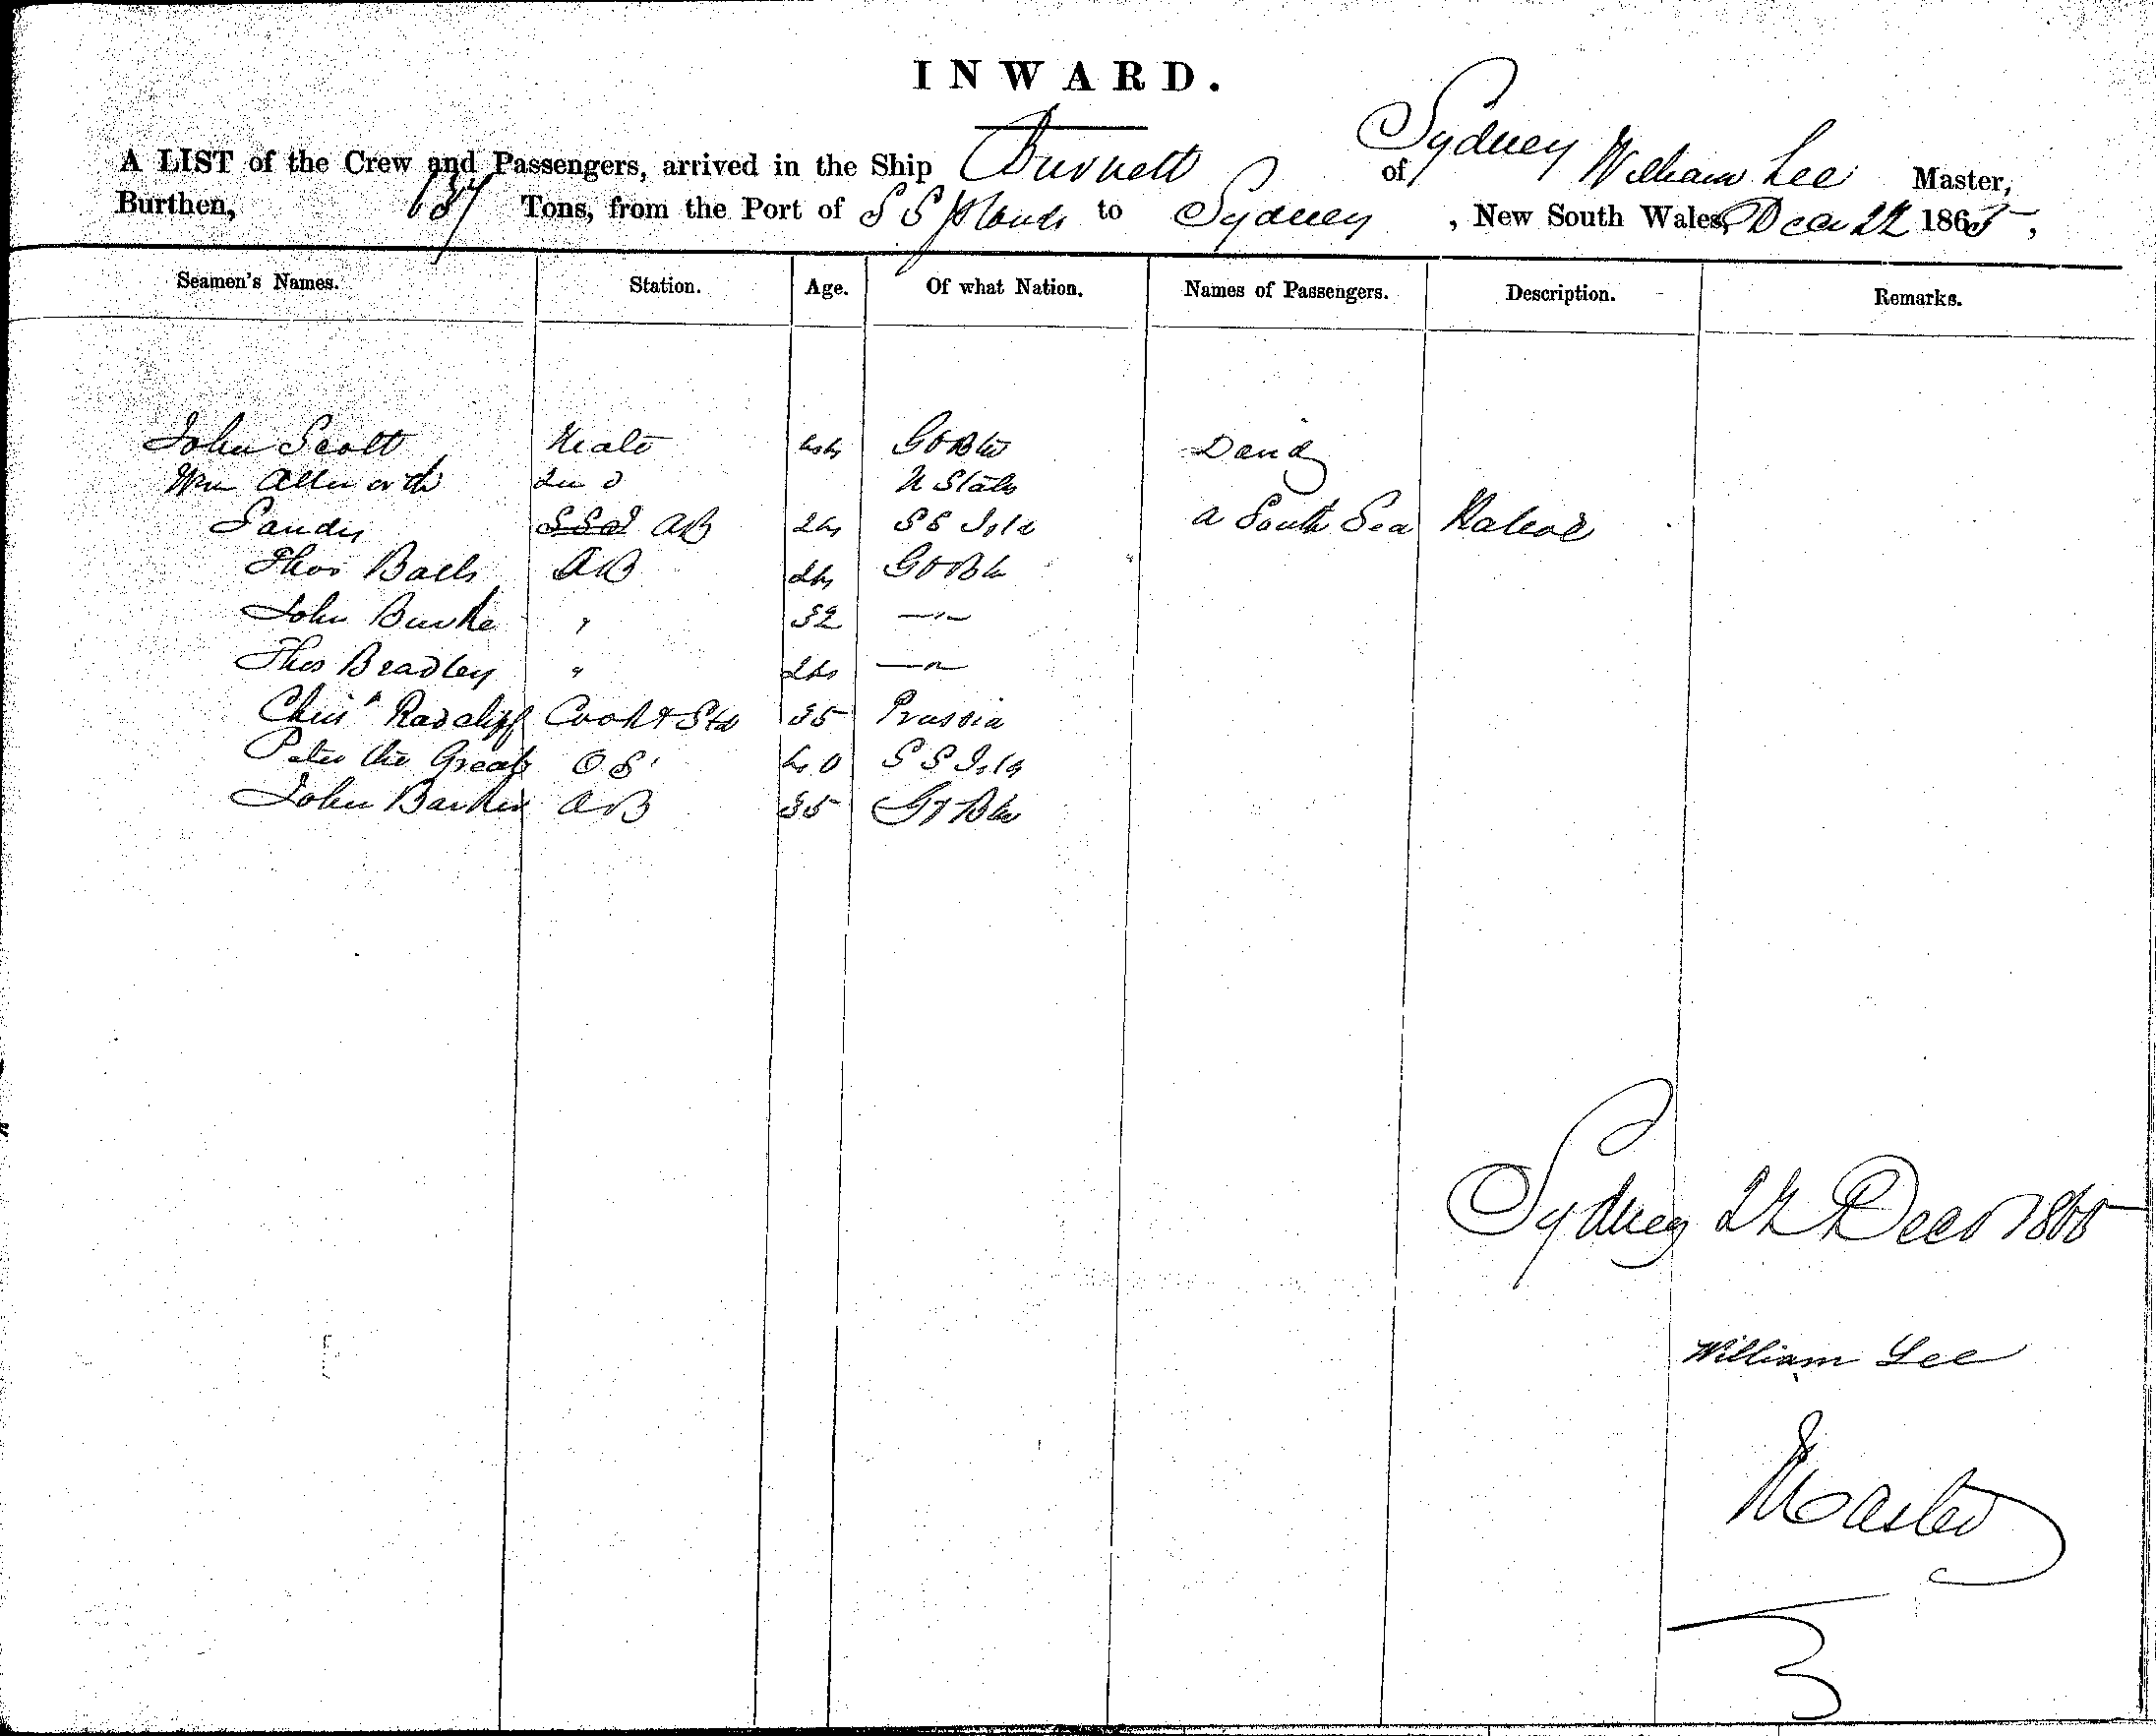 INWARD.
A LIST of the Crew and Passengers, arrived in the Ship Burnett of Sydney William Lee Master,
Burthen, Tons, from the Port of S S Islands to Sydney, New South Wales, Decr 22 1865,
Seamen's Names. Station. Age. Of what Nation. Names of Passengers. Description. Remarks.
John Scott Gt Btn David
Wm U States
Sandy AB 24 S S Isld a South Sea Native
Thos AB 24 Gt Btn
John Burke " 32 —"—
Thos Bradley " —"—
Chris Radcliff Cook & Std 35 Prussia
Peter the Great OS 40 S S Isld
John Barker AB 35 Gt Btn
Sydney 22 Decr 1865
William Lee
Master